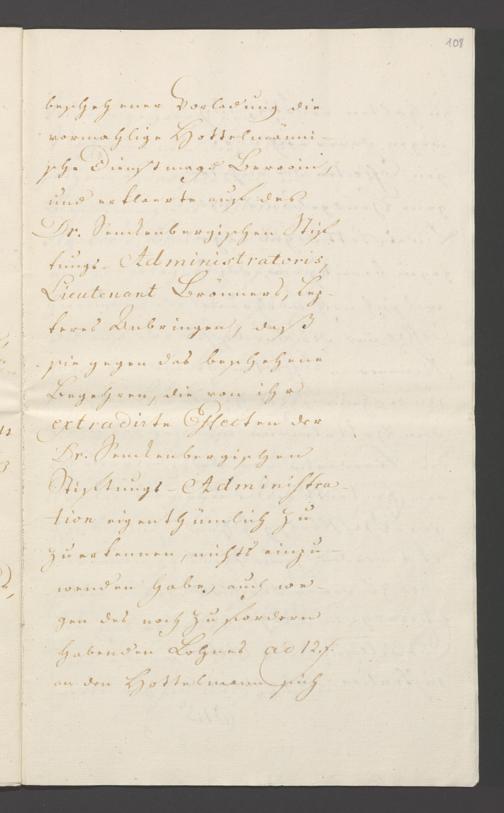 108
beschehener Vorladung die
vormahlige Hottelmänni-
sche Dienstmagd
und erklaerte auf des
Dr. Senckenbergischen Stif
tungs-Administratoris,
Lieutenant Brönners, lez-
teres Anbringen, daß
sie gegen das beschehene
Begehren, die von ihr
extradirte Effecten der
Dr. Senckenbergischen
Stiftungs-Administra-
tion eigenthümlich zu
zuerkennen, nichts einzu-
wenden habe, auch we-
gen des noch zu fordern
habenden Lohnes ad 12 f.
an den Hottelmann sich